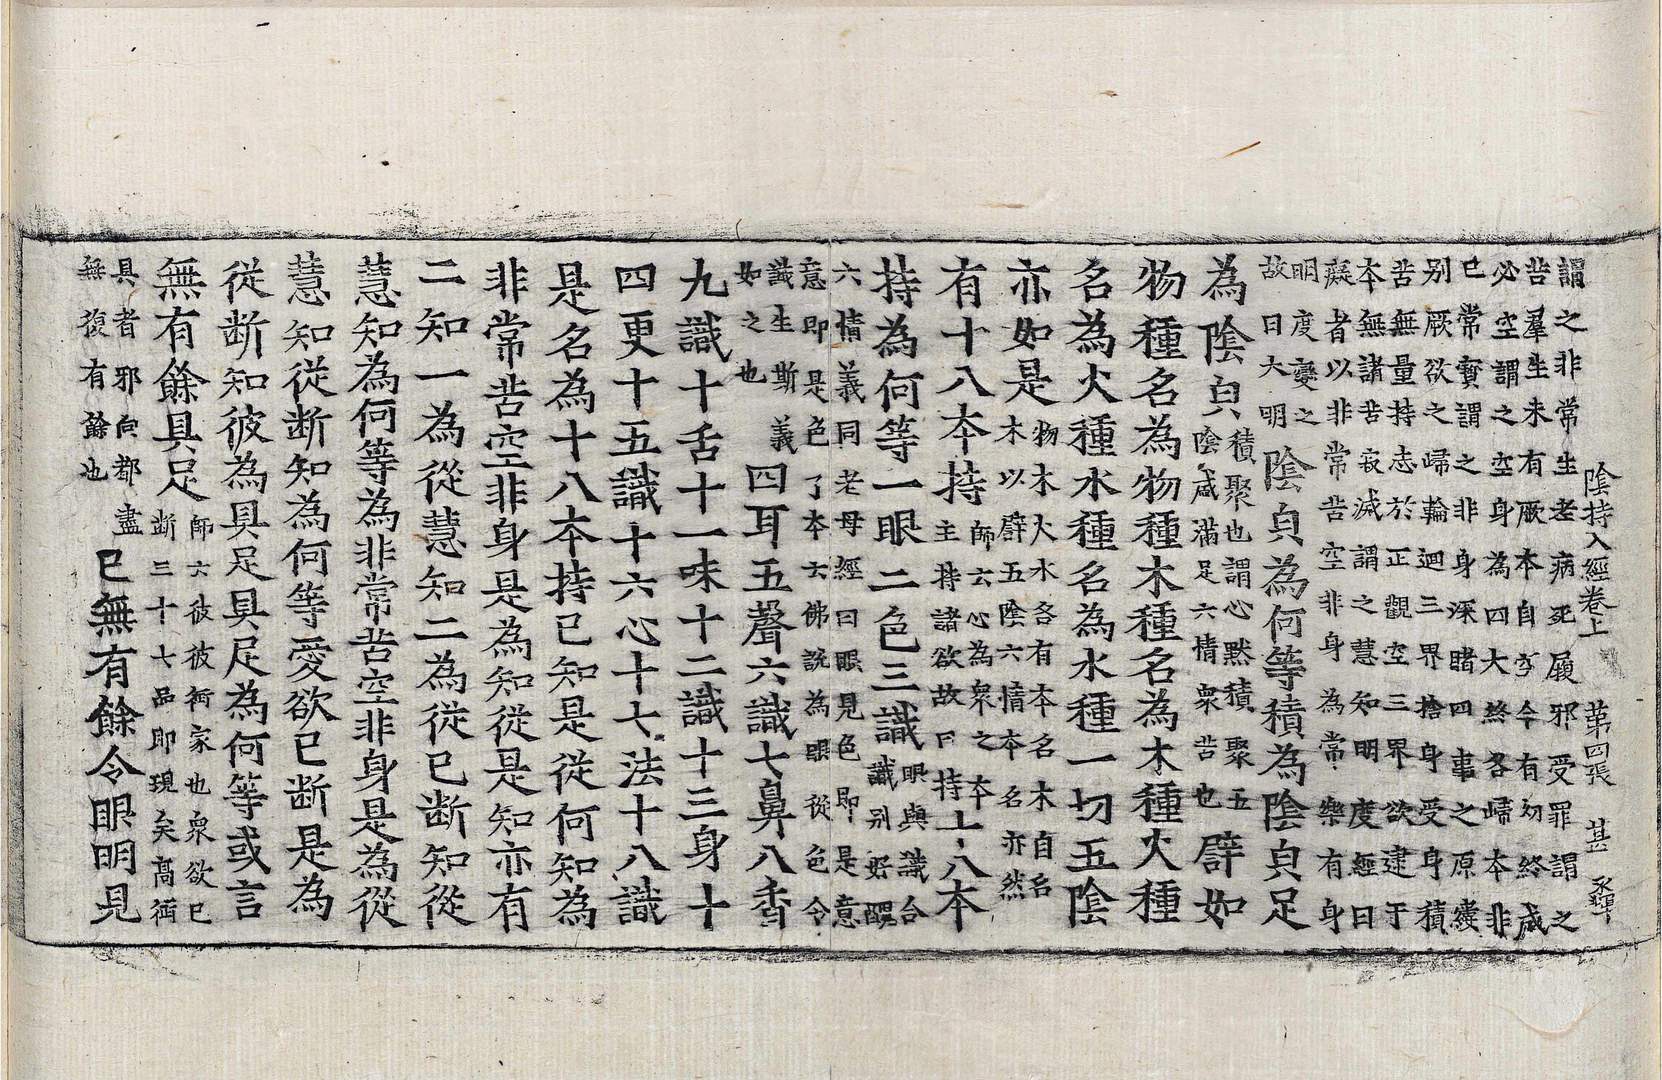 陰持入經卷上　第四張　甚
謂之非常生老病死履邪受罪謂之
苦羣生未有厥本自空今有勿終咸
必空謂之空身為四大終各歸本非
已常寶謂之非身深睹四事之原
別厥欲之歸輪迴三界捨身受身積
苦無量持志於正觀空三界欲逮于
本無諸苦寂滅謂之慧知明度經曰
癡者以非常苦空非身為常樂有身
明度變之
故曰大明
陰貟為何等積為陰貟足
為陰貟
積聚也謂心默積聚五
陰咸滿足六情衆苦也
譬如
物種名為物種木種名為木種火種
名為火種水種名為水種一切五陰
亦如是
物木火水各有本名木自名
木以譬五陰六情本名亦然
有十八本持
師云心為衆之本
主持諸欲故曰持
十八本
持為何等一眼二色三識
眼與識合
識別好醜
六情義同老母經曰眼見色即是意
意即是色了本故佛說為眼從色令
識生斯義
如之也
四耳五聲六識七鼻八香
九識十舌十一味十二識十三身十
四更十五識十六心十七法十八識
是名為十八本持已知是從何知為
非常苦空非身是為知從是知亦有
二知一為從慧知二為從已斷知從
慧知為何等為非常苦空非身是為從
慧知從斷知為何等愛欲已斷是為
從斷知彼為具足具足為何等或言
無有餘具足
師云彼彼衕家也衆欲已
斷三十七品即現矣高衕
具者邪向都盡
無復有餘也
已無有餘令眼明見